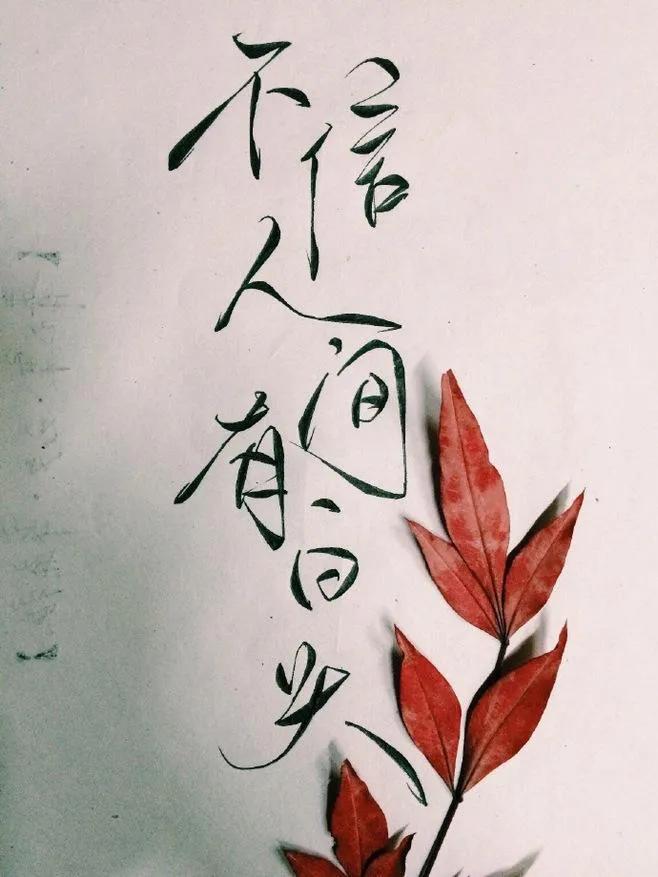 不信人间有白头